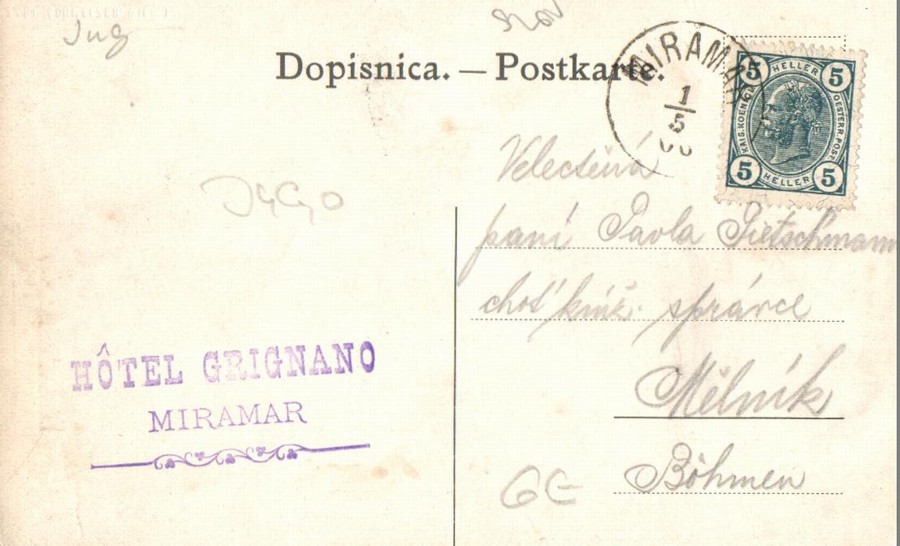 Jug
Slov
Dopisnica. — Postkarte.
MIRAMAR
1
5
5 HELLER 5
KAIS. KOENIGL. OESTERR. POST
5 HELLER 5
Velectěná
paní Pavla Pietschmann
choť kníž. správce
Mělník
Böhmen
HÔTEL GRIGNANO
MIRAMAR
6E